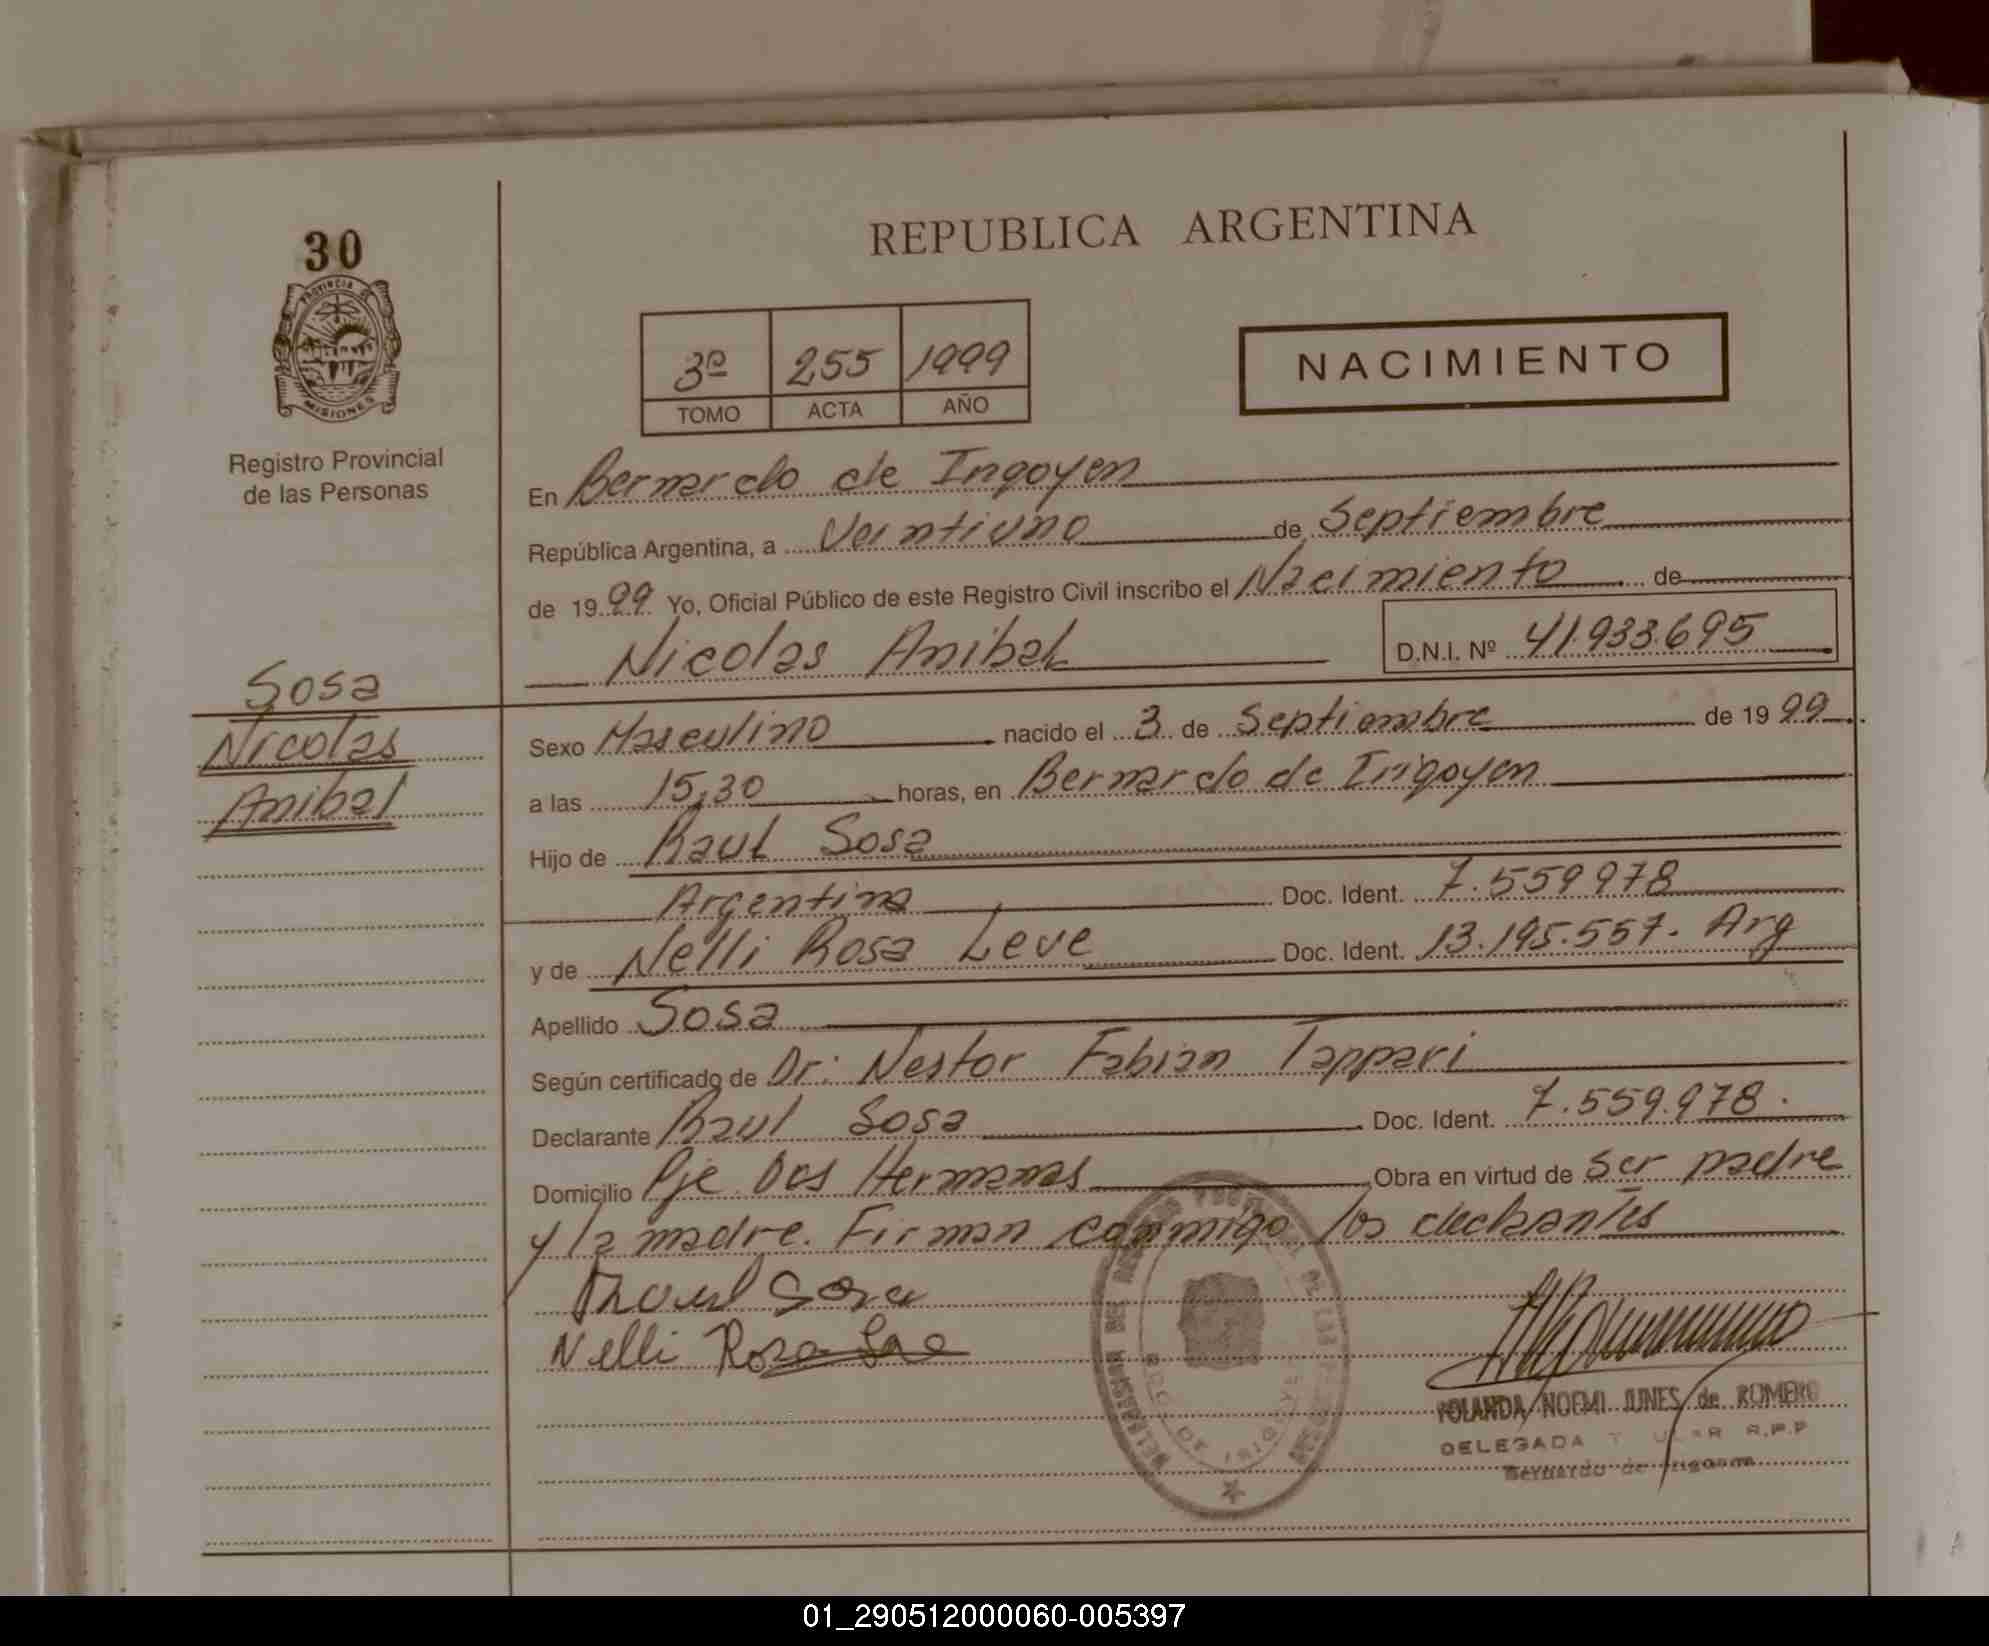 30
PROVINCIA DE
MISIONES
Registro Provincial
de las Personas
Sosa
Nicolas
Anibal
REPUBLICA ARGENTINA
3º 255 1999
TOMO ACTA AÑO
NACIMIENTO
En Bernardo de Irigoyen
República Argentina, a Veintiuno de Septiembre
de 1999 Yo, Oficial Público de este Registro Civil inscribo el Nacimiento de
Nicolas Anibal D.N.I. Nº 41.933.695
Sexo Masculino nacido el 3 de Septiembre de 1999
a las 15,30 horas, en Bernardo de Irigoyen
Hijo de Raul Sosa
Argentina Doc. Ident. 7.559978
y de Nelli Rosa Leve Doc. Ident. 13.195.557. Arg
Apellido Sosa
Según certificado de Dr: Nestor Fabian Tappari
Declarante Raul Sosa Doc. Ident. 7.559.978.
Domicilio Pje Dos Hermanas Obra en virtud de ser padre
y la madre. Firman conmigo los declarantes
Raul Sosa
Nelli Rosa
YOLANDA NOEMI JUNES de ROMERO
DELEGADA R.P.P
Bernardo de Irigoyen
01_290512000060-005397